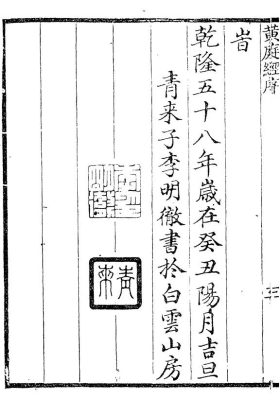 黄庭經序
三
旹
乾隆五十八年歲在癸丑陽月吉旦
青来子李明徹書扵白雲山房
青來